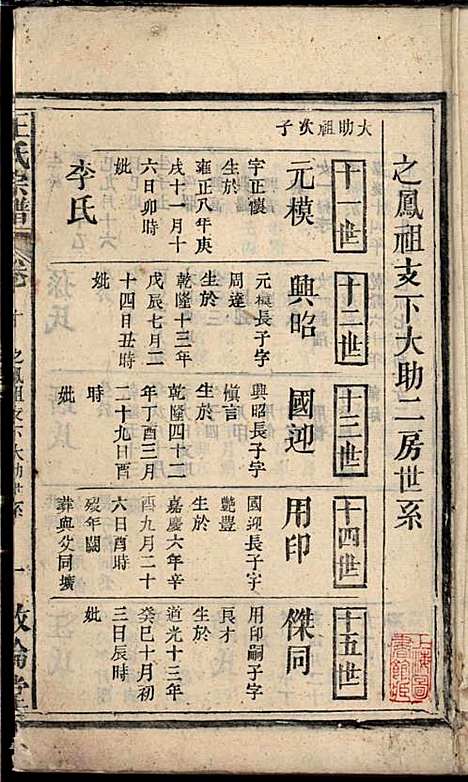 之鳳祖支下大助二房世系
十一世
大助祖次子
元模
字正㦂
生於
雍正八年庚
戌十一月十
六日卯時
妣
李氏
十二世
興昭
元模長子字
周達
生於
乾隆十三年
戊辰七月二
十四日丑時
妣
十三世
國迎
興昭長子字
慎言
生於
乾隆四十二
年丁酉三月
二十九日酉
時
妣
十四世
用印
國迎長子字
艷豐
生於
嘉慶六年辛
酉九月二十
六日酉時
歿年闕
葬與父同壙
十五世
傑同
用印嗣子字
良才
生於
道光十三年
癸巳十月初
三日辰時
妣
王氏宗譜
卷十
之鳳祖支下大助世系
一
敦倫堂
上海圖書館藏